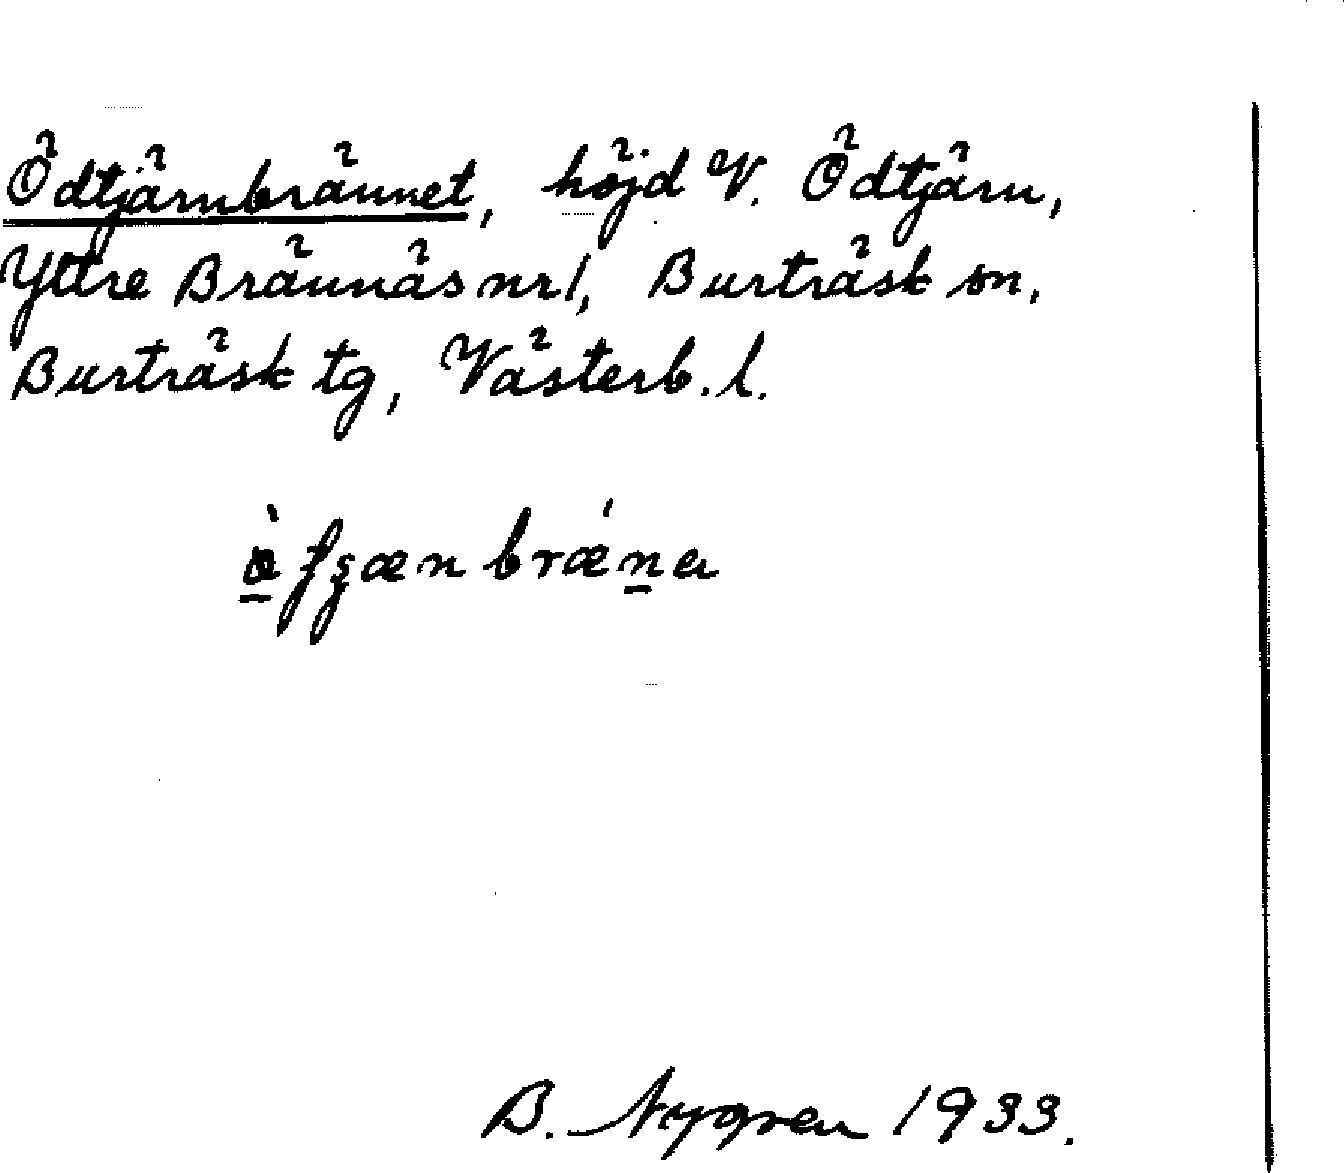 Ödtjärnbrännet, höjd V. Ödtjärn,
Yttre Brännäs nr 1, Burträsk sn,
Burträsk tg, Västerb. l.
B. Nygren 1933.